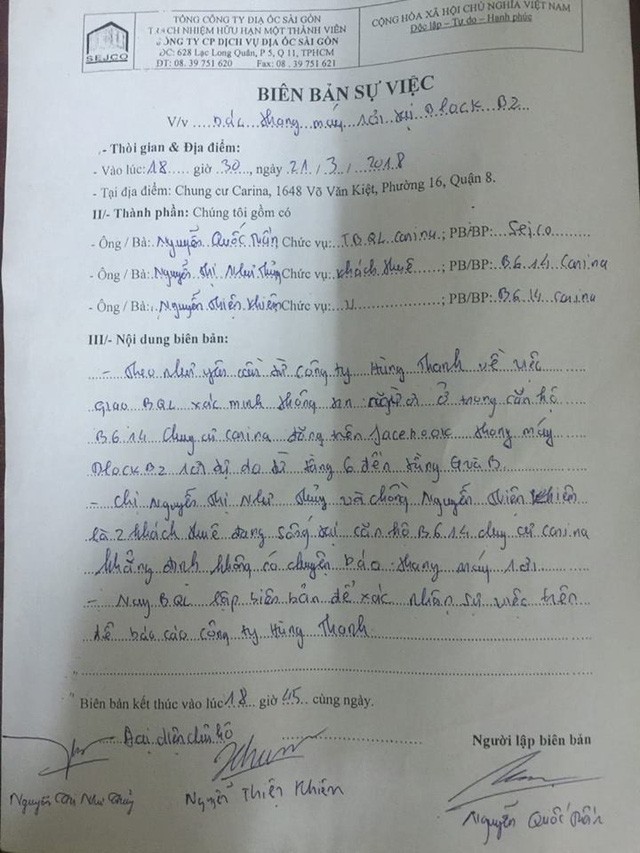 SEJCO
TỔNG CÔNG TY ĐỊA ỐC SÀI GÒN
TRÁCH NHIỆM HỮU HẠN MỘT THÀNH VIÊN
CÔNG TY CP DỊCH VỤ ĐỊA ỐC SÀI GÒN
ĐC: 628 Lạc Long Quân, P 5, Q 11, TPHCM
ĐT: 08. 39 751 620 Fax: 08 . 39 751 621
CỘNG HÒA XÃ HỘI CHỦ NGHĨA VIỆT NAM
Độc lập – Tự do – Hạnh phúc
BIÊN BẢN SỰ VIỆC
V/v ... thang máy rơi tại Block B2
.- Thời gian & Địa điểm:
- Vào lúc: 18 giờ 30, ngày 21 / 3 / 2018
- Tại địa điểm: Chung cư Carina, 1648 Võ Văn Kiệt, Phường 16, Quận 8.
II/- Thành phần: Chúng tôi gồm có
- Ông / Bà: Nguyễn Quốc Tuấn Chức vụ: T.BQL Carina; PB/BP: Sejco
- Ông / Bà: Nguyễn Thị Như Thủy Chức vụ: Khách thuê; PB/BP: B6.14 Carina
- Ông / Bà: Nguyễn Thiện Khiêm Chức vụ: ; PB/BP: B.6.14 Carina
III/- Nội dung biên bản:
- Theo như yêu cầu từ công ty Hùng Thanh về việc
giao BQL xác minh thông tin người ở trong căn hộ
B.6.14 Chung cư Carina đăng trên facebook thang máy
Block B2 rơi tự do từ tầng 6 đến tầng
- Chị Nguyễn Thị Như Thủy và chồng Nguyễn Thiện Khiêm
là 2 khách thuê đang sống tại căn hộ B.6.14 chung cư Carina
khẳng định không có chuyện báo thang máy rơi.
- Nay BQL lập biên bản để xác nhận sự việc trên
để báo cáo công ty Hùng Thanh
Biên bản kết thúc vào lúc 18 giờ 45 cùng ngày.
Đại diện chủ hộ
Người lập biên bản
Nguyễn Thị Như Thủy
Nguyễn Thiện Khiêm
Nguyễn Quốc Tuấn